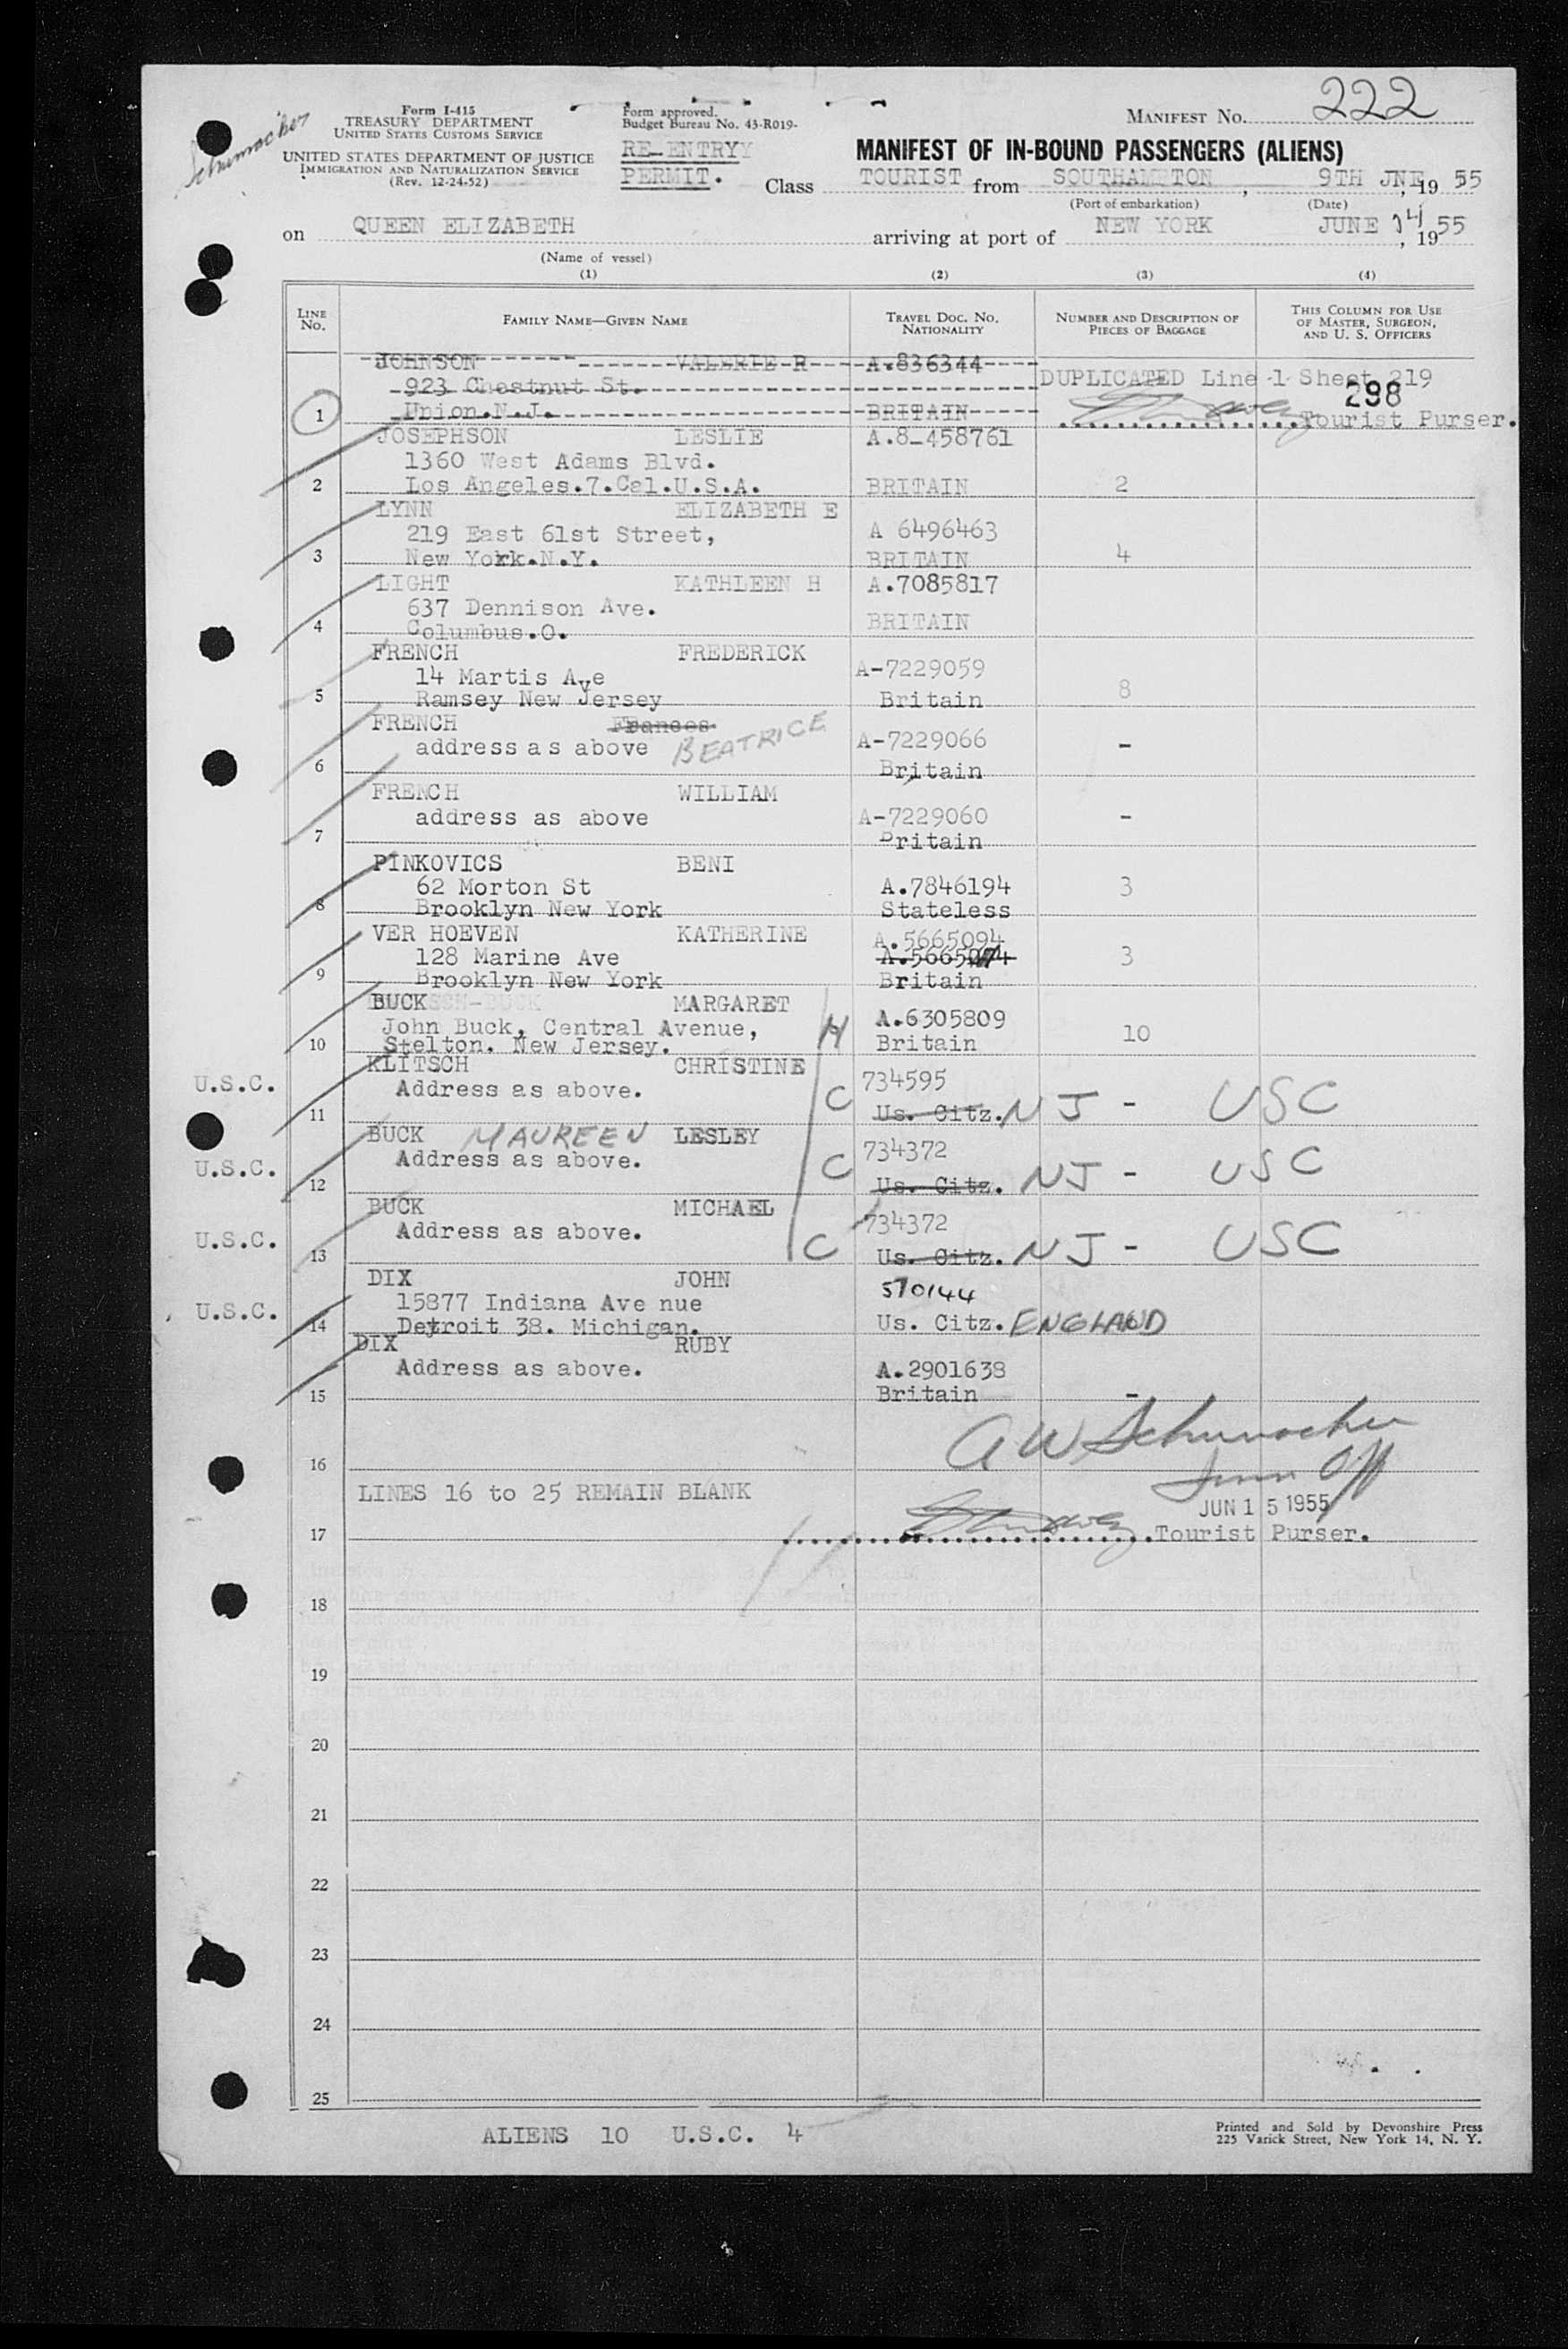 Schumacher
Form I-415
TREASURY DEPARTMENT
UNITED STATES CUSTOMS SERVICE
UNITED STATES DEPARTMENT OF JUSTICE
IMMIGRATION AND NATURALIZATION SERVICE
(Rev. 12-24-52)
Form approved.
Budget Bureau No. 43-R019-
RE-ENTRYY
PERMIT.
MANIFEST NO. 222
MANIFEST OF IN-BOUND PASSENGERS (ALIENS)
Class TOURIST from SOUTHAMPTON , 9TH JNE, 19 55
(Port of embarkation) (Date)
on QUEEN ELIZABETH arriving at port of NEW YORK JUNE 14, 1955
(Name of vessel)
(1) (2) (3) (4)
LINE No. FAMILY NAME—GIVEN NAME TRAVEL DOC. NO. NATIONALITY NUMBER AND DESCRIPTION OF PIECES OF BAGGAGE THIS COLUMN FOR USE OF MASTER, SURGEON, AND U. S. OFFICERS
JOHNSON VALERIE R A.836344
923 Chestnut St. DUPLICATED Line 1 Sheet 219
298
1 Union.N.J. BRITAIN Tourist Purser.
JOSEPHSON LESLIE A.8-458761
1360 West Adams Blvd.
2 Los Angeles.7.Cal.U.S.A. BRITAIN 2
LYNN ELIZABETH E
219 East 61st Street, A 6496463
3 New York.N.Y. BRITAIN 4
LIGHT KATHLEEN H A.7085817
637 Dennison Ave.
4 Columbus.O. BRITAIN
FRENCH FREDERICK A-7229059
14 Martis Ave
5 Ramsey New Jersey Britain 8
FRENCH Frances
address as above BEATRICE A-7229066 -
6 Britain
FRENCH WILLIAM
address as above A-7229060 -
7 Britain
PINKOVICS BENI
62 Morton St A.7846194 3
8 Brooklyn New York Stateless
VER HOEVEN KATHERINE A.5665094
128 Marine Ave 3
9 Brooklyn New York Britain
BUCK MARGARET A.6305809
John Buck, Central Avenue, H 10
10 Stelton. New Jersey. Britain
KLITSCH CHRISTINE 734595
U.S.C. Address as above. C
11 Us. Citz. NJ - USC
BUCK MAUREEN LESLEY 734372
U.S.C. Address as above. C
12 Us. Citz. NJ - USC
BUCK MICHAEL 734372
U.S.C. Address as above.
13 C Us. Citz. NJ - USC
DIX JOHN 570144
U.S.C. 15877 Indiana Ave nue
14 Detroit 38. Michigan. Us. Citz. ENGLAND
DIX RUBY
Address as above. A.2901638
15 Britain -
A W Schumacher
16 Imm Off
LINES 16 to 25 REMAIN BLANK
JUN 15 1955
17 Tourist Purser.
18
19
20
21
22
23
24
25
ALIENS 10 U.S.C. 4
Printed and Sold by Devonshire Press
225 Varick Street, New York 14, N. Y.